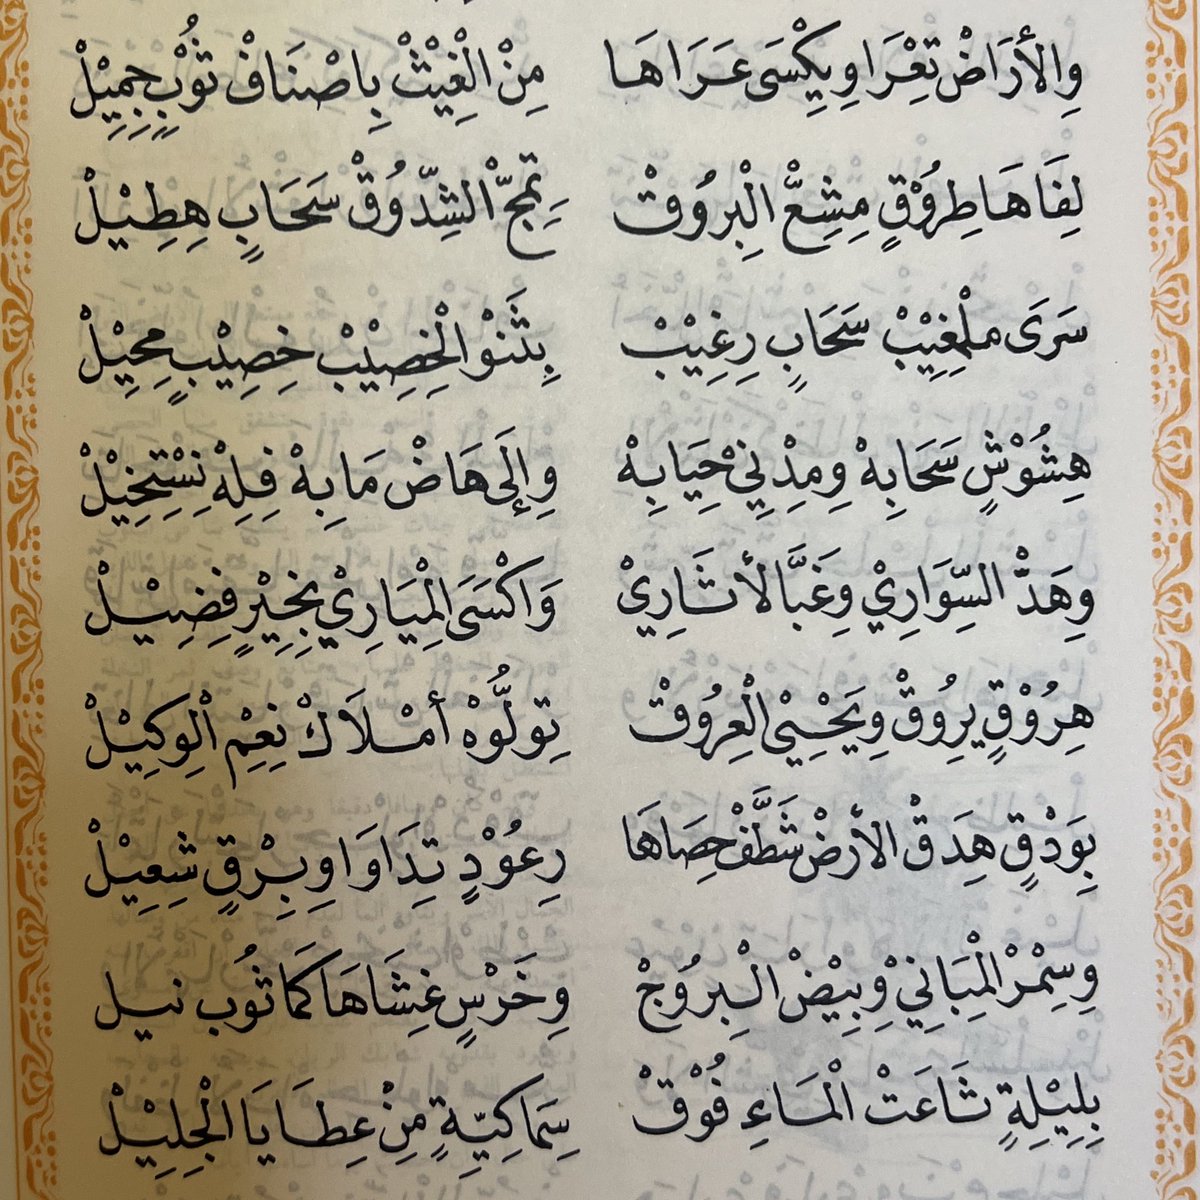 وِالأرَاضْ تَعْرَا وِيِكْسَى عَرَاهَا مِنْ الْغِيْثْ بِاصْنَافْ ثُوْبٍ جِمِيْلْ
لِفَاهَا طِرُوْقٍ مِشِعَّ الْبِرُوقْ تِمِجّ الشِّدُوْقْ سَحَابٍ هِطِيْلْ
سَرَى مَلْغِيِبْ سَحَابٍ رِغِيْبْ بِتَنَوْ الْخِصِيْبْ خِصِيْبٍ مِحِيْلْ
هِشُوْشٍ سَحَابِهْ وِمِدْنِيْ حِيَابِهْ وِإلَى هَاضْ مَابِهْ فِلِهْ نِسْتِخِيْلْ
وِهَدْ السِّوَارِيْ وِغَبَّ الأثَارِيْ وَاكْسَى الْمِيَارِيْ بِخِيْرٍ فِضِيْلْ
هِرُوْقٍ يِرُوِقْ وِيَحْيِيْ الْعِرُوقْ تِوِلُّوْهْ أمْلَاكْ نِعِمْ الْوِكِيْلْ
بِوَدْقٍ هِدَقْ الأرضْ شَطَّفْ حِصَاهَا رِعُوْدٍ تِدَاوَا وِبِرْقٍ شِعِيْلْ
وِسِمْرْ الْمِبَانِيْ وِبِيْضْ الْبِرُوجْ وِخَرْسٍ غِشَاهَا كَمَا ثُوب نيل
بِلِيْلِةٍ ثَاعَتْ الْمَاءِ فُوْقْ سِمَاكِيّةٍ مِنْ عِطَايَا الْجِلِيْلْ